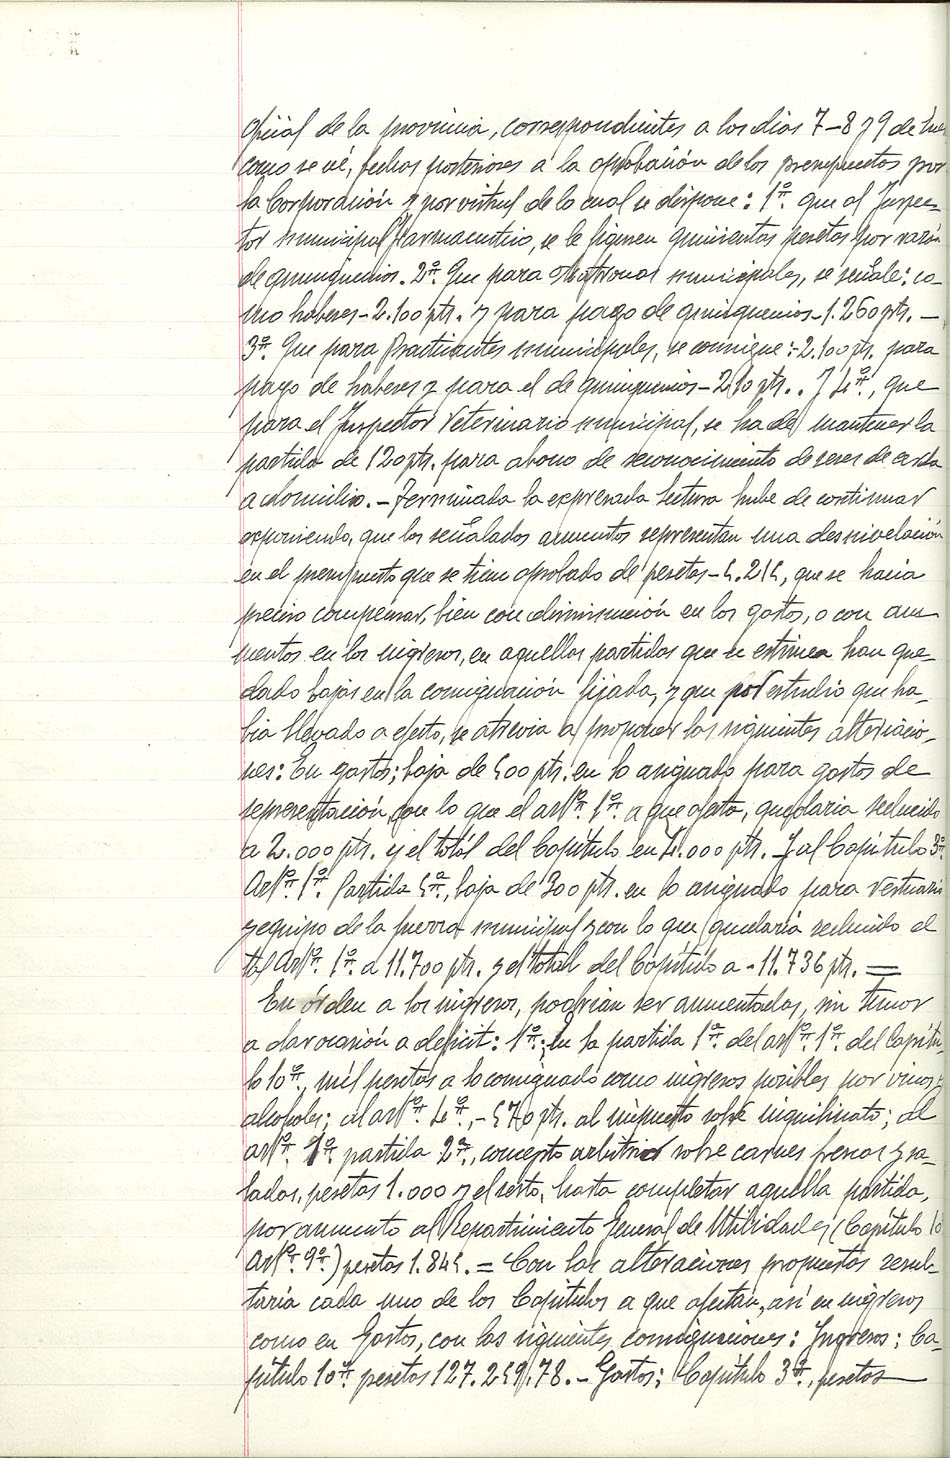 oficial de la provincia, correspondientes a los dias 7-8 y 9 de
como se vé, fechas posteriores a la aprobación de los presupuestos por
la Corporación y por virtud de lo cual se dispone: 1º. que al Inspec-
tor municipal farmaceutico, se le fijen quinientas pesetas por razón
de quinquenios. 2º. Que para Matronas municipales, se señale: co-
mo haberes-2.100 pts. y para pago de quinquenios-1.260 pts. —
3º. Que para Practicantes municipales, se consigne:-2.100 pts. para
pago de haberes y para el de quinquenios-210 pts.. Y 4º., que
para el Inspector Veterinario municipal, se ha de mantener la
partida de 120 pts. para abono de reconocimiento de reses de cerda
a domicilio.-Terminada la expresada lectura hube de continuar
exponiendo, que los señalados aumentos representan una desnivelación
en el presupuesto que se tiene aprobado de pesetas-5.215, que se hacia
preciso compensar, bien con disminución en los gastos, o con au-
mentos en los ingresos, en aquellas partidas que se estimen han que-
dado bajas en la consignación fijada, y que por estudio que ha-
bia llevado a efecto, se atrevia a proponer las siguientes alteracio-
nes: En gastos; baja de 500 pts. en lo asignado para gastos de
representación, con lo que el artº. 1º. a que afecta, quedaria reducido
a 2.000 pts. y el totál del Capítulo en 4.000 pts. Y al Capítulo 3º.
Artº. 1º. Partida 5ª., baja de 300 pts. en lo asignado para vestuario
y equipo de la guardia municipal y con lo que quedaría reducido el
tal Artº. 1º. a 11.700 pts. y el total del Capítulo a-11.736 pts. =
En órden a los ingresos, podrian ser aumentados, sin temor
a dar ocasión a deficit: 1º.; en la partida 1ª. del artº. 1º. del Capítu-
lo 10º., mil pesetas a lo consignado como ingresos posibles por vinos y
alcoholes; al artº. 4º.,-570 pts. al impuesto sobre inquilinato; al
artº. 1º. partida 2ª., concepto arbitrio sobre carnes frescas y sa-
ladas, pesetas 1.000 y el resto, hasta completar aquella partida,
por aumento al Repartimiento General de Utilidades, (Capítulo 10
Artº. 9º.) pesetas 1.845.= Con las alteraciones propuestas resul-
taria cada uno de los Capítulos a que afectan, así en ingresos
como en Gastos, con las siguientes consignaciones: Ingresos; Ca-
pítulo 10º. pesetas 127.259,78.-Gastos; Capítulo 3º., pesetas—